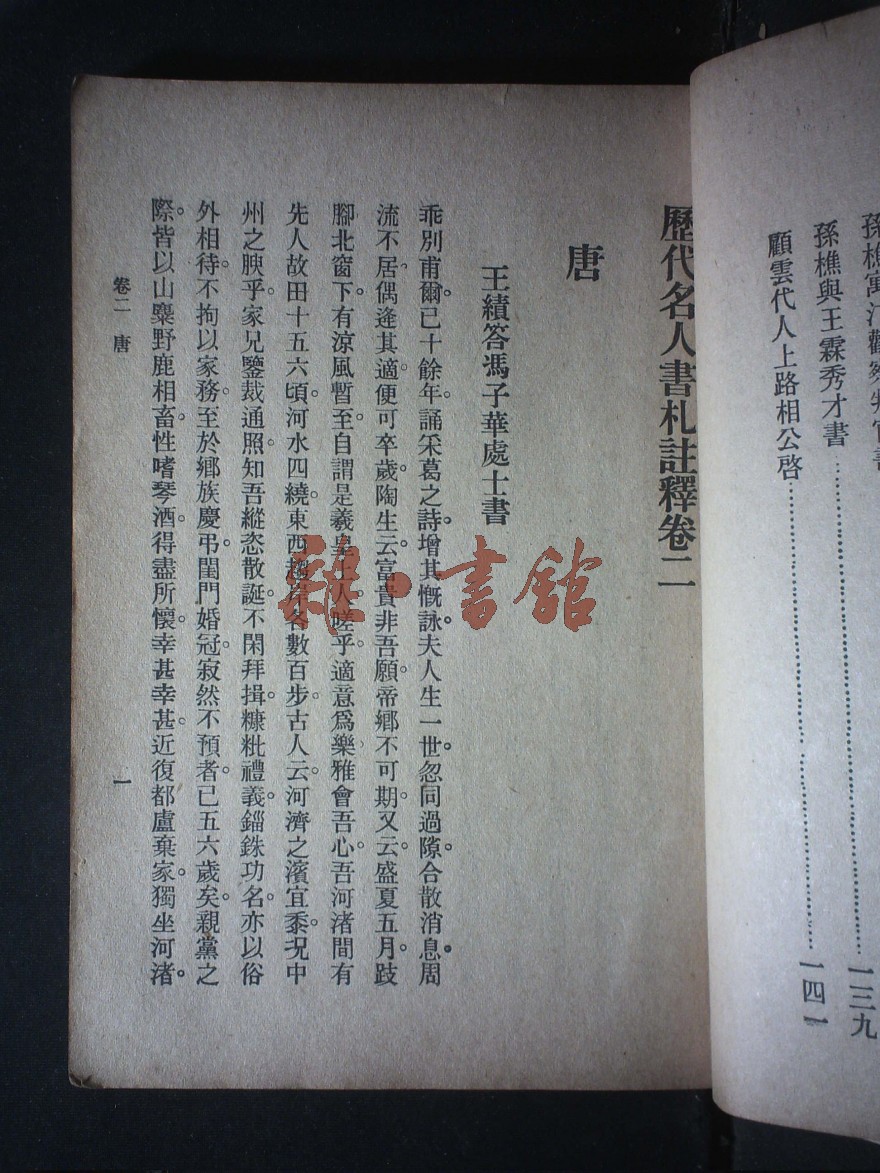 孫樵寓汴觀察判官書
孫樵與王霖秀才書……一三九
顧雲代人上路相公啓……一四一
歷代名人書札註釋卷二
唐
王績答馮子華處士書
乖別甫爾。已十餘年。誦采葛之詩。增其慨詠。夫人生一世。忽同過隙。合散消息。周
流不居。偶逢其適。便可卒歲。陶生云。富貴非吾願。帝鄉不可期。又云。盛夏五月。跂
腳北窗下。有涼風暫至。自謂是羲皇上人。嗟乎。適意爲樂。雅會吾心。吾河渚間。有
先人故田十五六頃。河水四繞。東西趨岸。各數百步。古人云。河濟之濱宜黍。況中
州之腴乎。家兄鑒裁通照。知吾縱恣散誕。不閑拜揖。糠粃禮義。錙銖功名。亦以俗
外相待。不拘以家務。至於鄉族慶弔。閨門婚冠。寂然不預者。已五六歲矣。親黨之
際。皆以山麋野鹿相畜。性嗜琴酒。得盡所懷。幸甚幸甚。近復都盧棄家。獨坐河渚。
卷二 唐
一
雜·書館